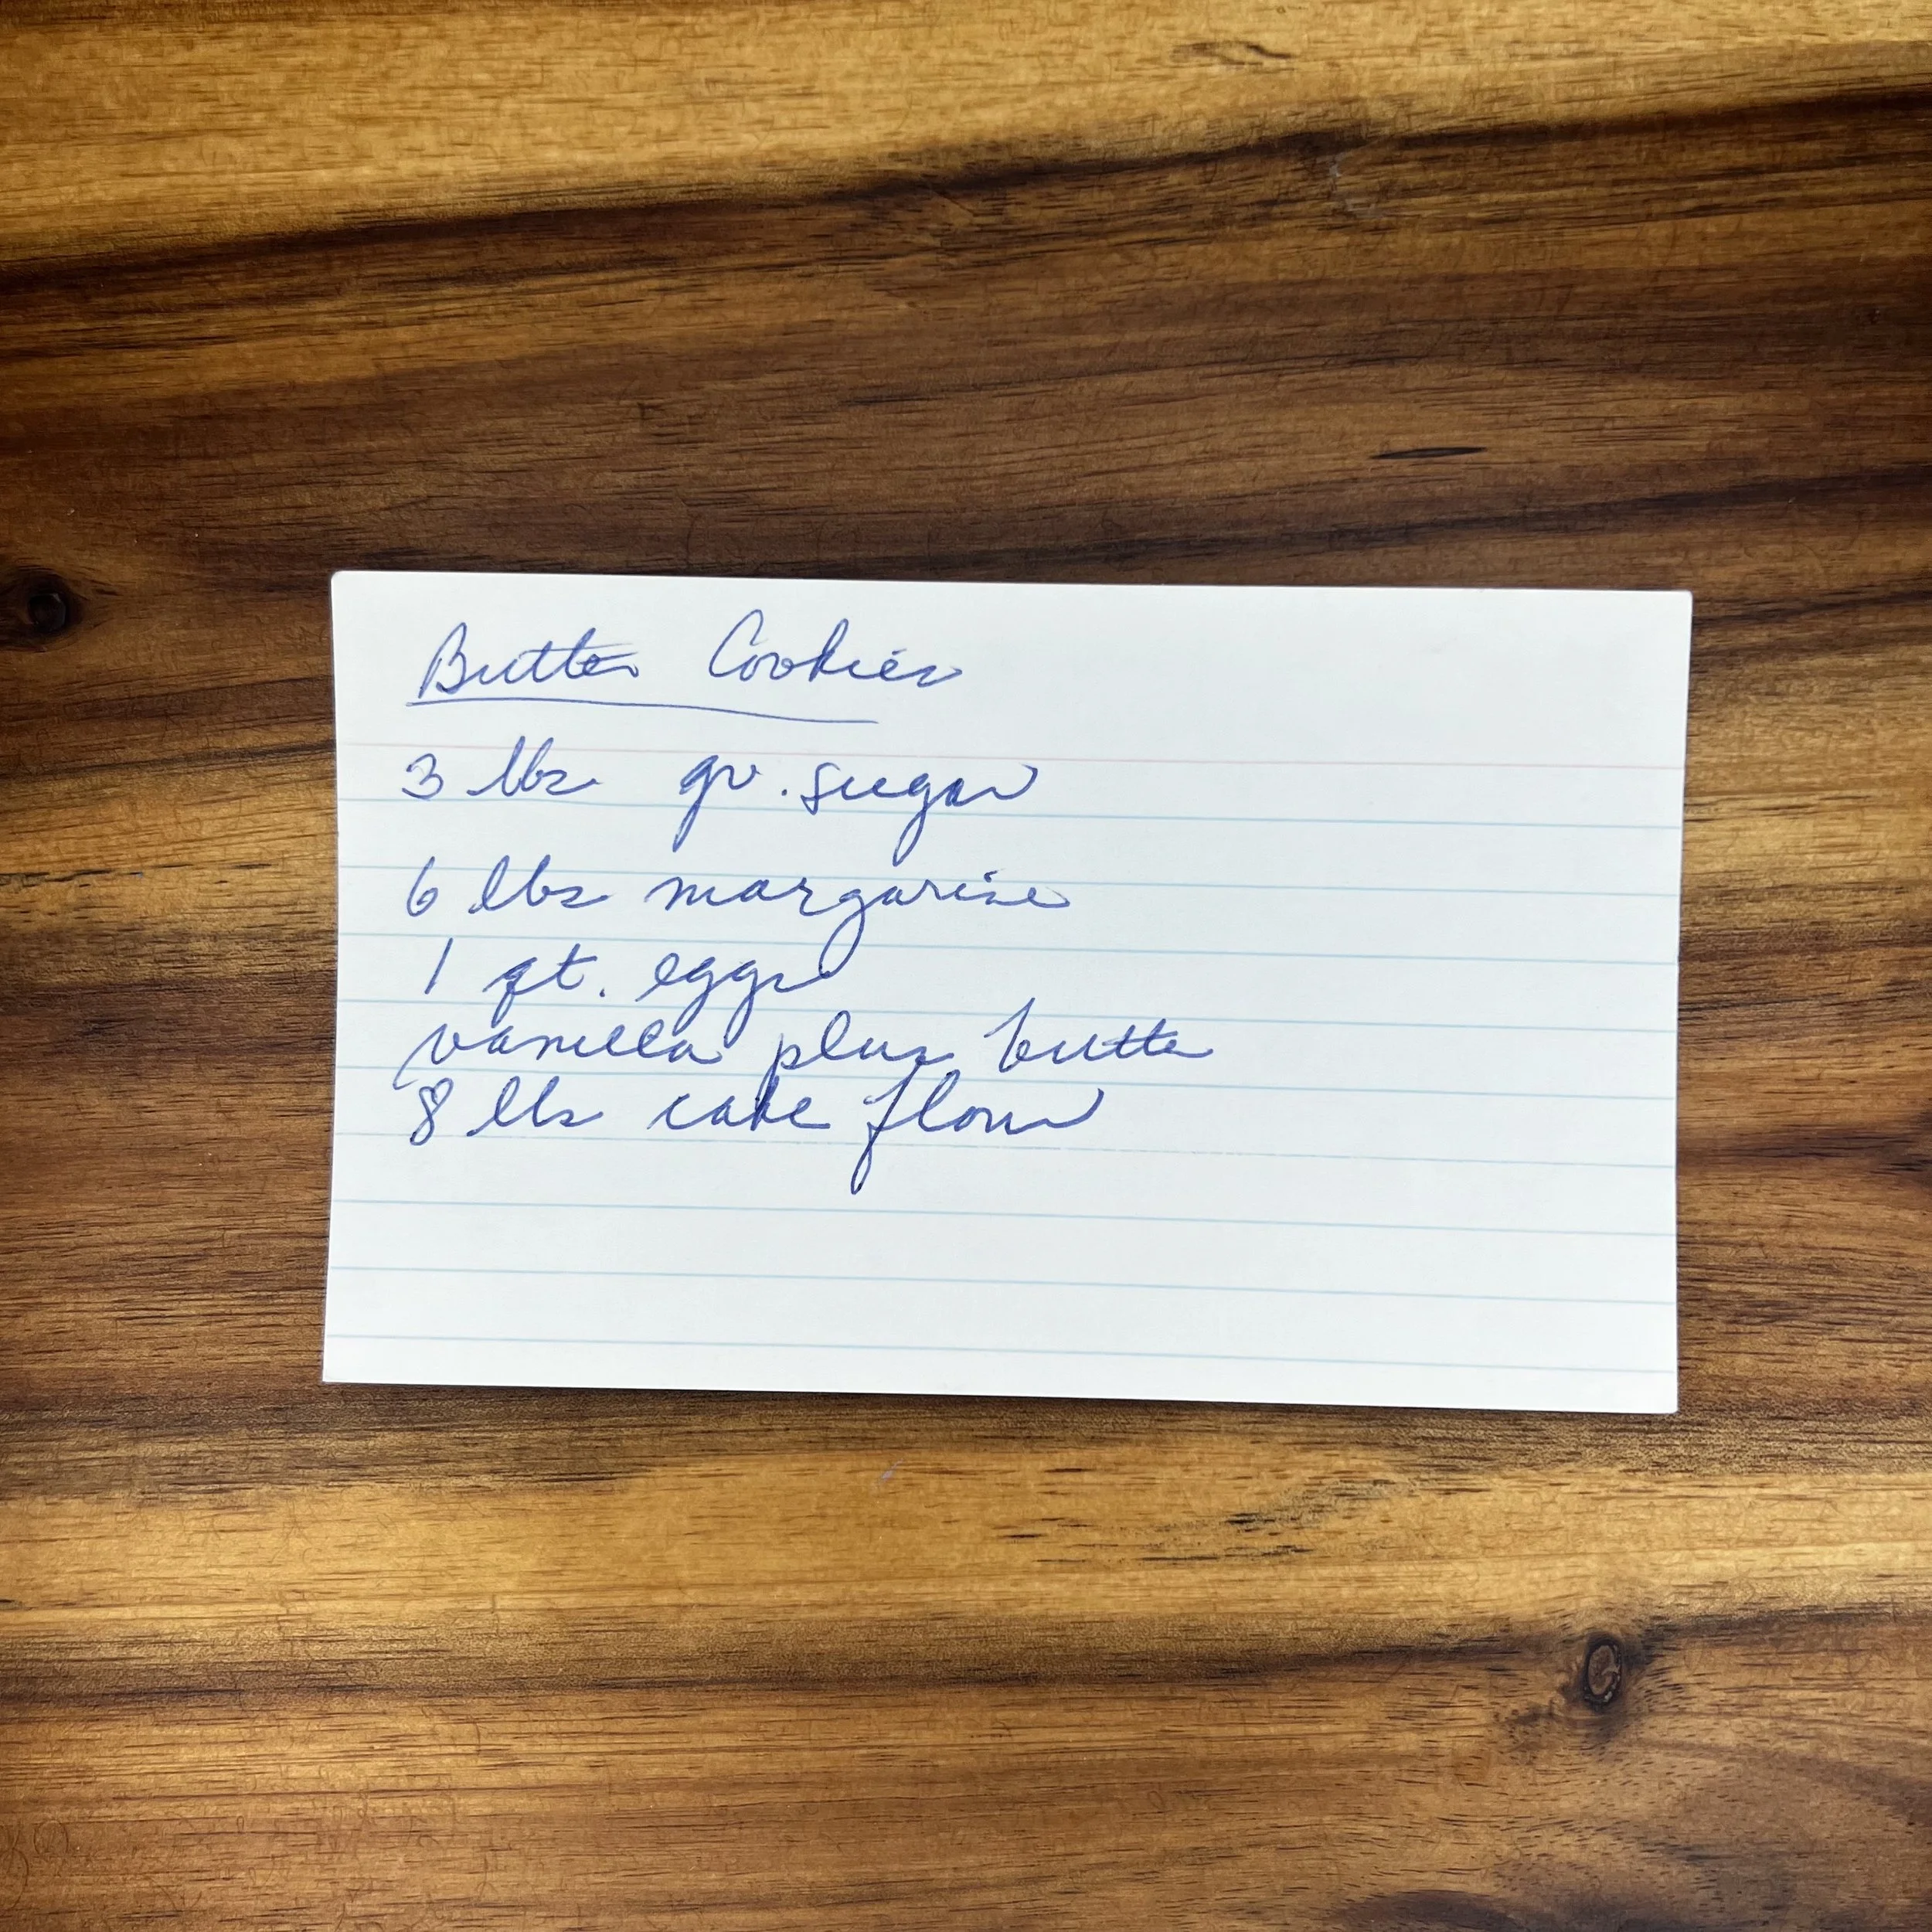 Butter Cookies
3 lbs gr. sugar
6 lbs margarine
1 qt. eggs
vanilla plus butter
8 lbs cake flour